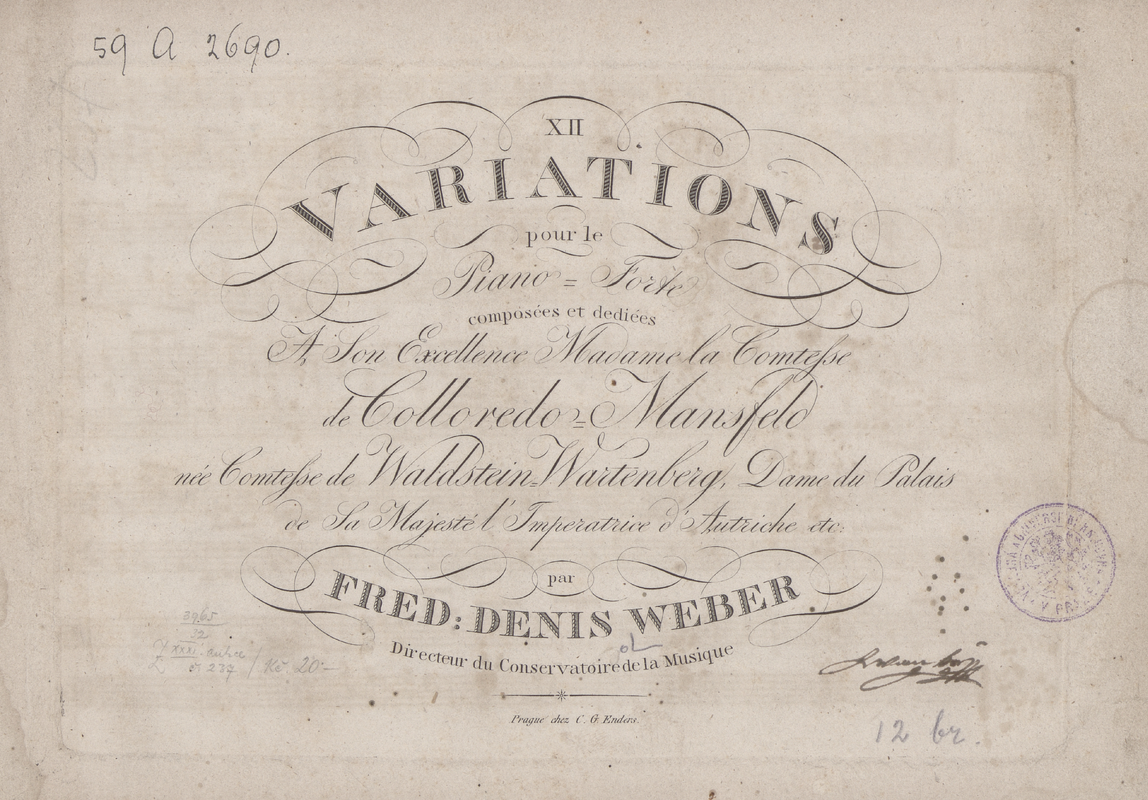 59 A 2690.
XII
VARIATIONS
pour le
Piano = Forte
composées et dediées
A Son Excellence Madame la Comtesse
de Colloredo = Mansfeld
née Comtesse de Waldstein=Wartenberg, Dame du Palais
de Sa Majesté l'Imperatrice d'Autriche etc:
par
FRED: DENIS WEBER
Directeur du Conservatoire de la Musique
Prague chez C. G. Enders.
12 br.